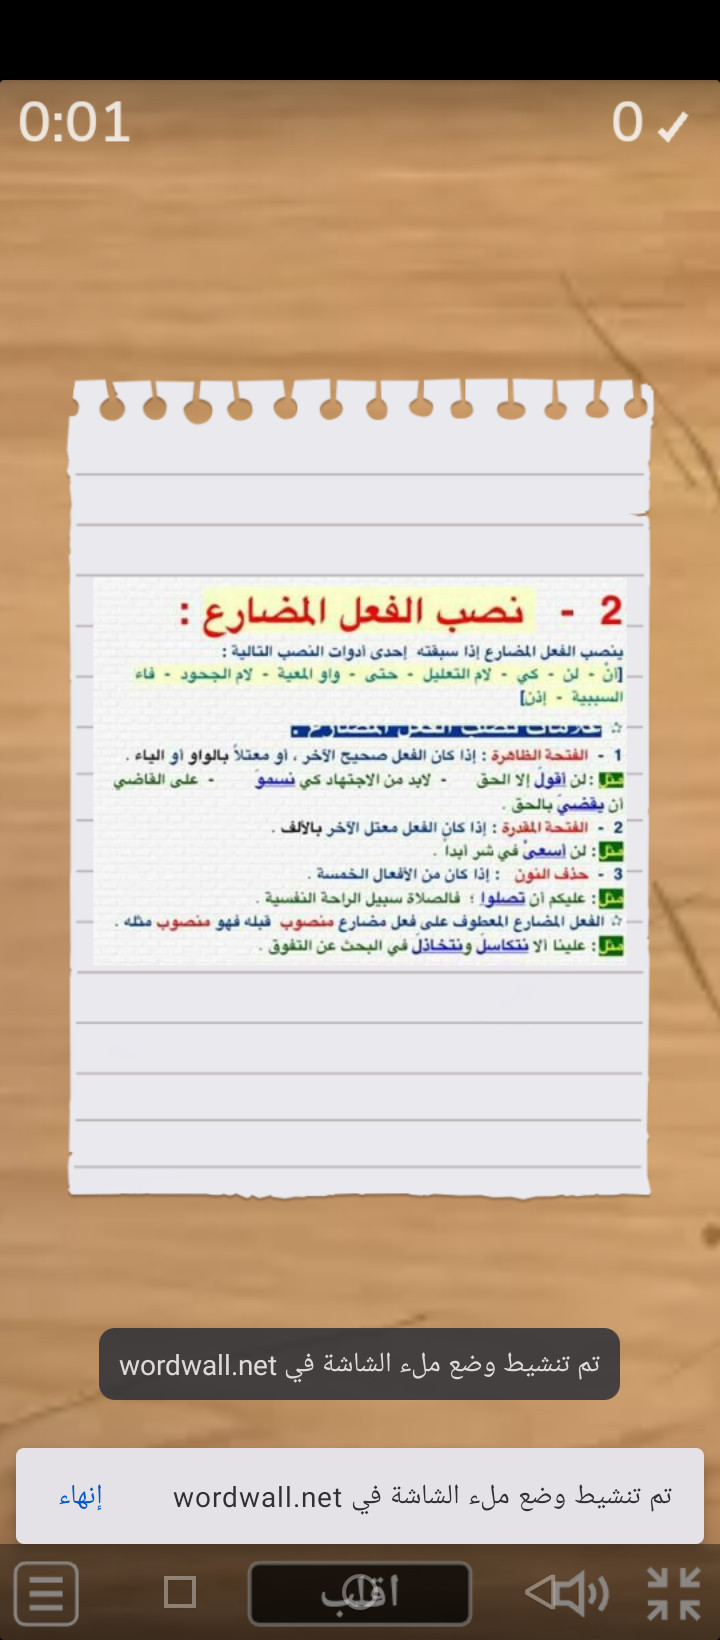 0:01
0
2 - نصب الفعل المضارع :
ينصب الفعل المضارع إذا سبقته إحدى أدوات النصب التالية :
[أنْ - لن - كي - لام التعليل - حتى - واو المعية - لام الجحود - فاء
السببية - إذن]
☆ علامات نصب الفعل المضارع :
1 - الفتحة الظاهرة : إذا كان الفعل صحيح الآخر ، أو معتلاً بالواو أو الياء .
مثل : لن أقولَ إلا الحق - لابد من الاجتهاد كي نسموَ - على القاضي
أن يقضيَ بالحق .
2 - الفتحة المقدرة : إذا كان الفعل معتل الآخر بالألف .
مثل : لن أسعىْ في شر أبداً .
3 - حذف النون : إذا كان من الأفعال الخمسة .
مثل : عليكم أن تصلوا ؛ فالصلاة سبيل الراحة النفسية .
☆ الفعل المضارع المعطوف على فعل مضارع منصوب قبله فهو منصوب مثله .
مثل : علينا ألا نتكاسلَ ونتخاذلَ في البحث عن التفوق .
تم تنشيط وضع ملء الشاشة في wordwall.net
تم تنشيط وضع ملء الشاشة في wordwall.net
إنهاء
اقلب